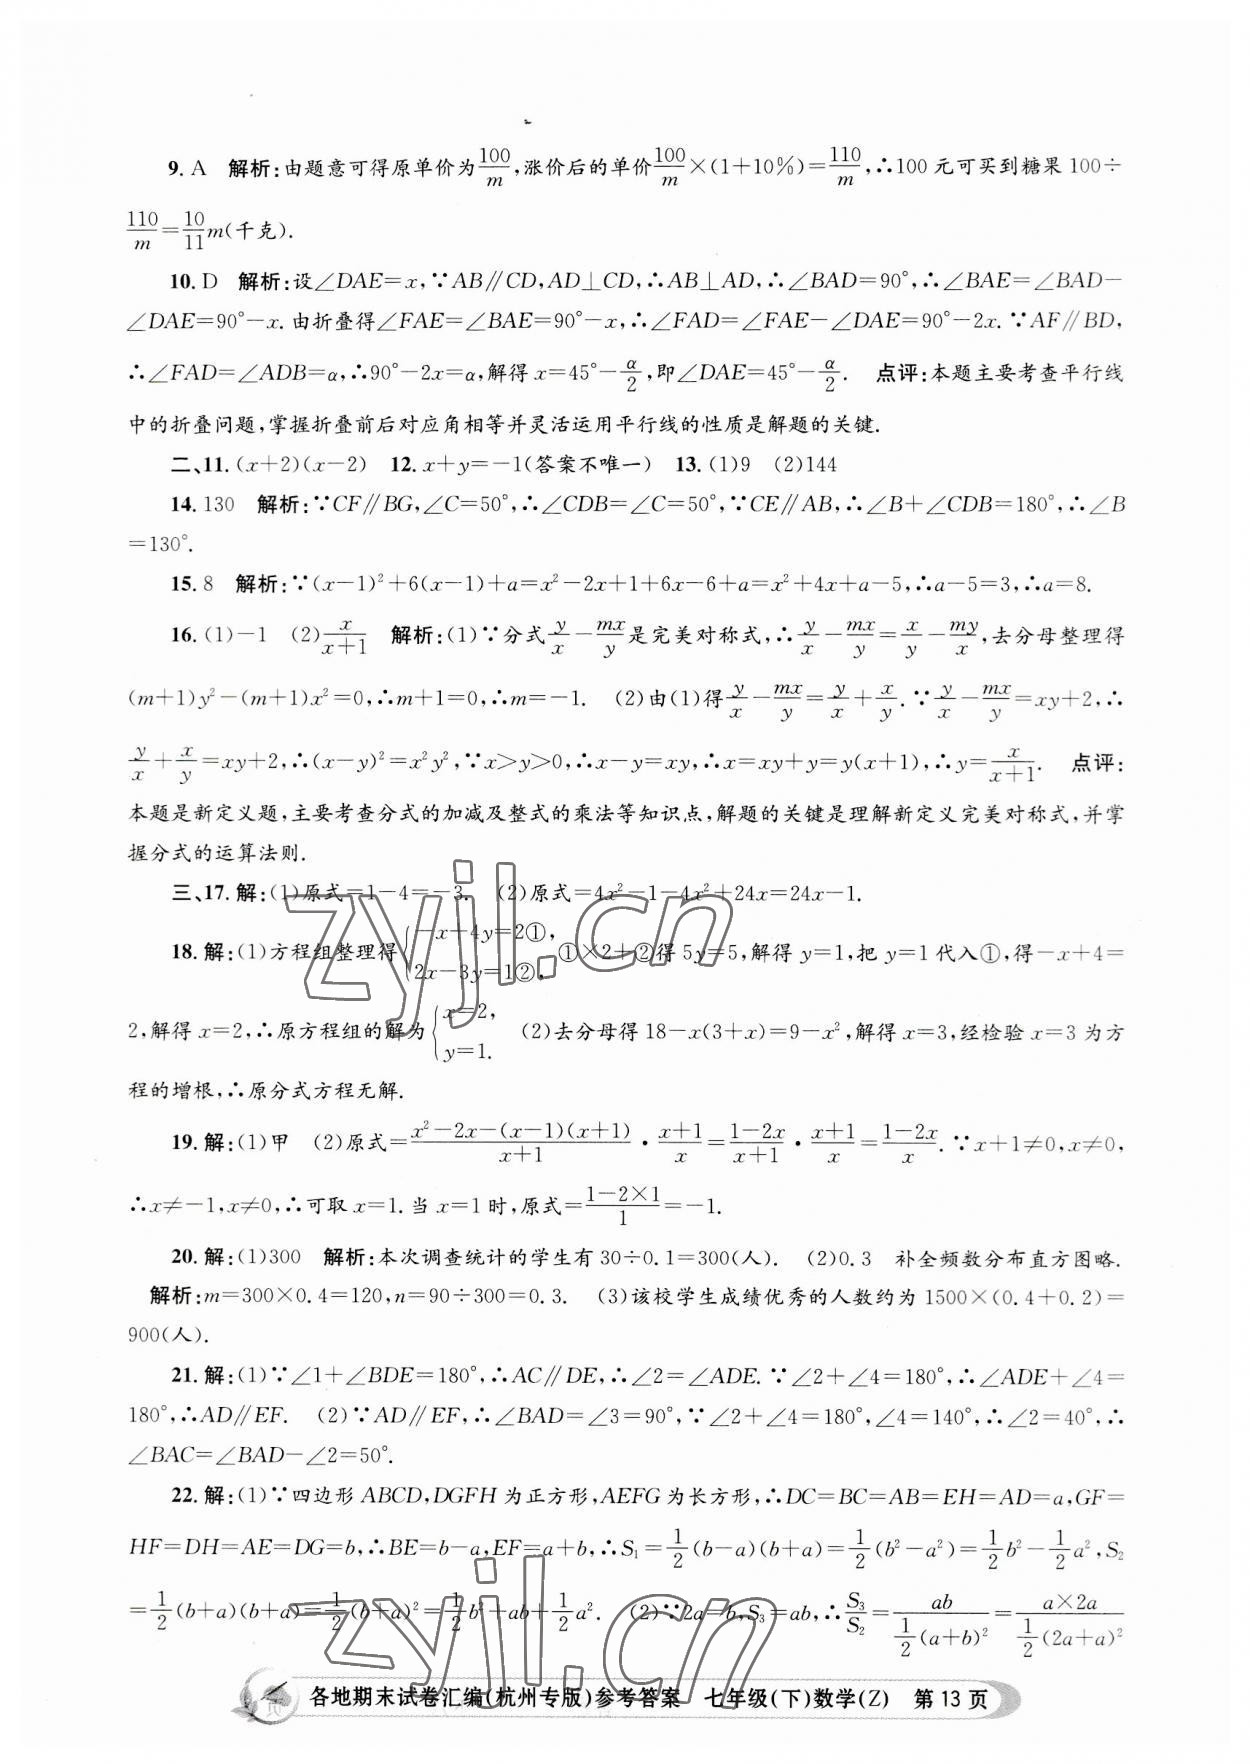 9. A 解析:由题意可得原单价为100/m,涨价后的单价100/m×(1+10%)=110/m,∴100元可买到糖果100÷
110/m=10/11m(千克).
10. D 解析:设∠DAE=x,∵AB∥CD,AD⊥CD,∴AB⊥AD,∴∠BAD=90°,∴∠BAE=∠BAD-
∠DAE=90°-x.由折叠得∠FAE=∠BAE=90°-x,∴∠FAD=∠FAE-∠DAE=90°-2x.∵AF∥BD,
∴∠FAD=∠ADB=α,∴90°-2x=α,解得x=45°-α/2,即∠DAE=45°-α/2. 点评:本题主要考查平行线
中的折叠问题,掌握折叠前后对应角相等并灵活运用平行线的性质是解题的关键.
二、11.(x+2)(x-2) 12. x+y=-1(答案不唯一) 13.(1)9 (2)144
14. 130 解析:∵CF∥BG,∠C=50°,∴∠CDB=∠C=50°,∵CE∥AB,∴∠B+∠CDB=180°,∴∠B
=130°.
15. 8 解析:∵(x-1)²+6(x-1)+a=x²-2x+1+6x-6+a=x²+4x+a-5,∴a-5=3,∴a=8.
16.(1)-1 (2)x/(x+1) 解析:(1)∵分式y/x-mx/y是完美对称式,∴y/x-mx/y=x/y-my/x,去分母整理得
(m+1)y²-(m+1)x²=0,∴m+1=0,∴m=-1. (2)由(1)得y/x-mx/y=y/x+x/y.∵y/x-mx/y=xy+2,∴
y/x+x/y=xy+2,∴(x-y)²=x²y²,∵x>y>0,∴x-y=xy,∴x=xy+y=y(x+1),∴y=x/(x+1). 点评:
本题是新定义题,主要考查分式的加减及整式的乘法等知识点,解题的关键是理解新定义完美对称式,并掌
握分式的运算法则.
三、17.解:(1)原式=1-4=-3. (2)原式=4x²-1-4x²+24x=24x-1.
18.解:(1)方程组整理得{-x+4y=2①, 2x-3y=1②, ①×2+②得5y=5,解得y=1,把y=1代入①,得-x+4=
2,解得x=2,∴原方程组的解为{x=2, y=1. (2)去分母得18-x(3+x)=9-x²,解得x=3,经检验x=3为方
程的增根,∴原分式方程无解.
19.解:(1)甲 (2)原式=(x²-2x-(x-1)(x+1))/(x+1)·(x+1)/x=(1-2x)/(x+1)·(x+1)/x=(1-2x)/x.∵x+1≠0,x≠0,
∴x≠-1,x≠0,∴可取x=1.当x=1时,原式=(1-2×1)/1=-1.
20.解:(1)300 解析:本次调查统计的学生有30÷0.1=300(人). (2)0.3 补全频数分布直方图略.
解析:m=300×0.4=120,n=90÷300=0.3. (3)该校学生成绩优秀的人数约为1500×(0.4+0.2)=
900(人).
21.解:(1)∵∠1+∠BDE=180°,∴AC∥DE,∴∠2=∠ADE.∵∠2+∠4=180°,∴∠ADE+∠4=
180°,∴AD∥EF. (2)∵AD∥EF,∴∠BAD=∠3=90°,∵∠2+∠4=180°,∠4=140°,∴∠2=40°,∴
∠BAC=∠BAD-∠2=50°.
22.解:(1)∵四边形ABCD,DGFH为正方形,AEFG为长方形,∴DC=BC=AB=EH=AD=a,GF=
HF=DH=AE=DG=b,∴BE=b-a,EF=a+b,∴S₁=1/2(b-a)(b+a)=1/2(b²-a²)=1/2b²-1/2a²,S₂
=1/2(b+a)(b+a)=1/2(b+a)²=1/2b²+ab+1/2a². (2)∵2a=b,S₃=ab,∴S₃/S₂=ab/(1/2(a+b)²)=(a×2a)/(1/2(2a+a)²)
各地期末试卷汇编(杭州专版)参考答案 七年级(下)数学(Z) 第13页
zyjl.cn
zyjl.cn